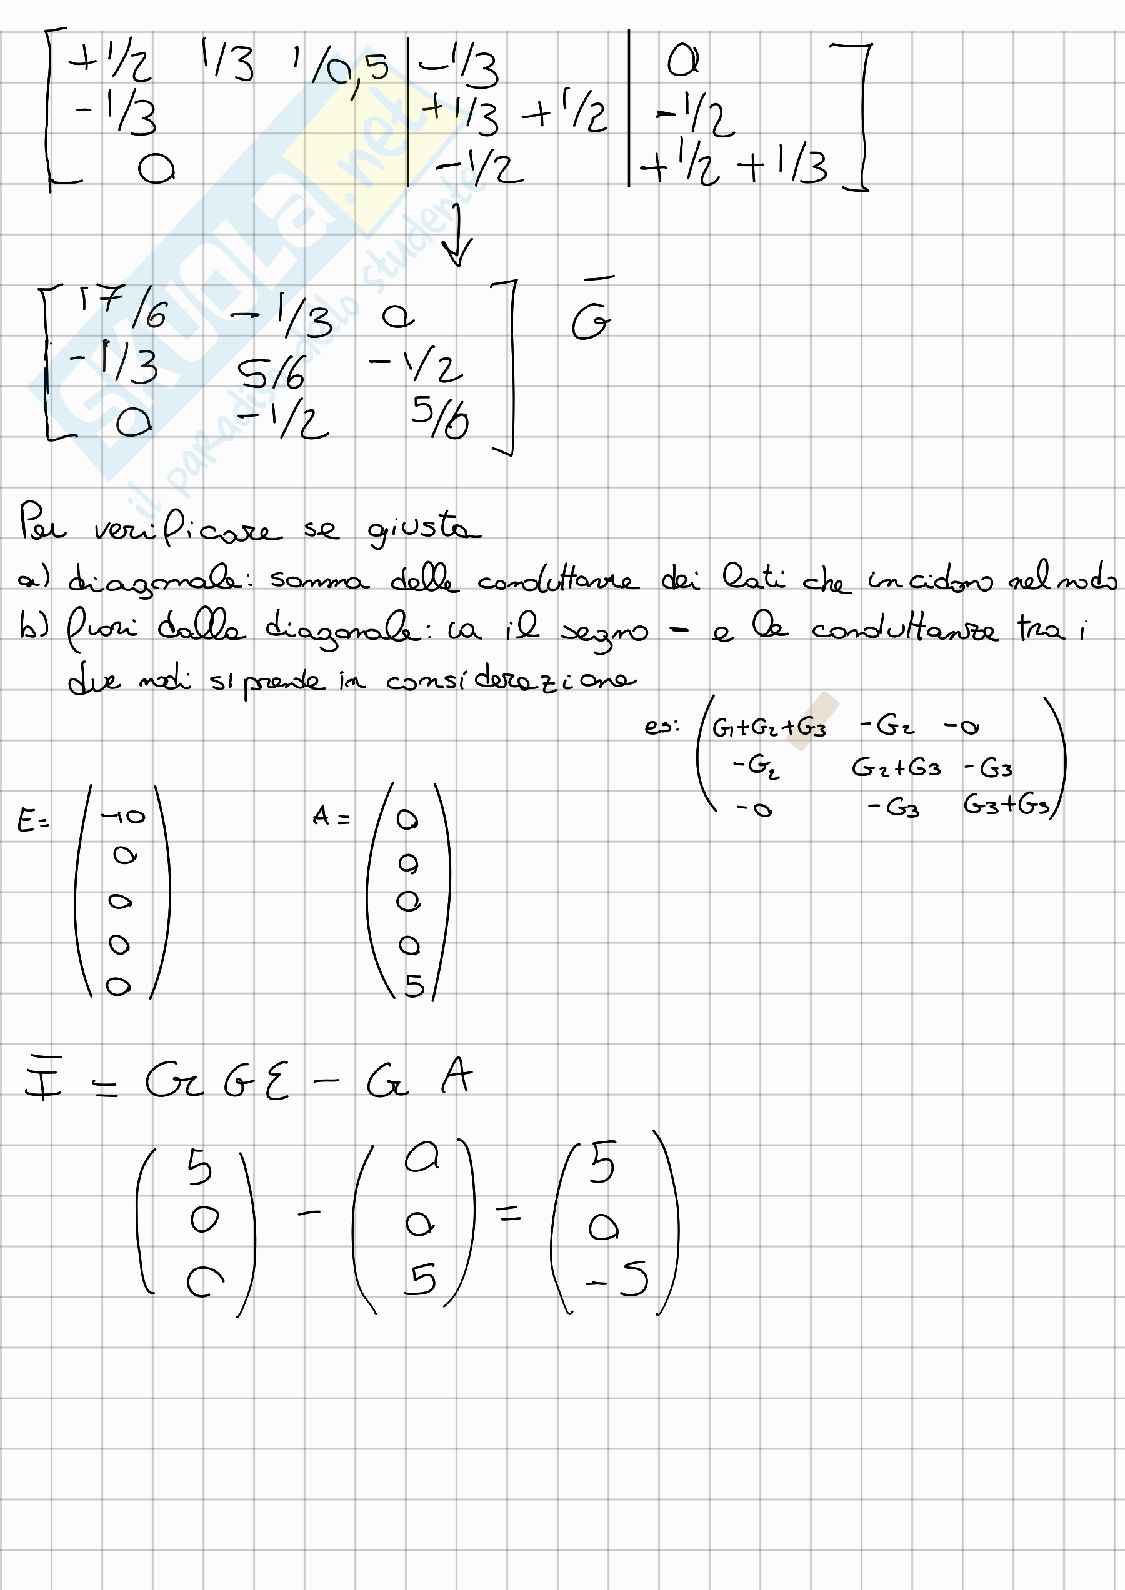 +1/2 1/3 1/0,5 | -1/3 | 0
-1/3 | +1/3 +1/2 | -1/2
0 | -1/2 | +1/2 +1/3
↓
17/6 -1/3 0
-1/3 5/6 -1/2
0 -1/2 5/6
G̅
SKUOLA.net
il paradiso dello studente
Per verificare se giusta
a) diagonale: somma delle conduttanze dei lati che incidono nel nodo
b) fuori dalla diagonale: ca il segno - e le conduttanze tra i
due nodi si prende in considerazione
es: G1+G2+G3 -G2 -0
-G2 G2+G3 -G3
-0 -G3 G3+G3
E=
-10
0
0
0
0
A =
0
0
0
0
5
I̅ = Gr G E - Gr A
( 5 0 0 ) - ( 0 0 5 ) = ( 5 0 -5 )